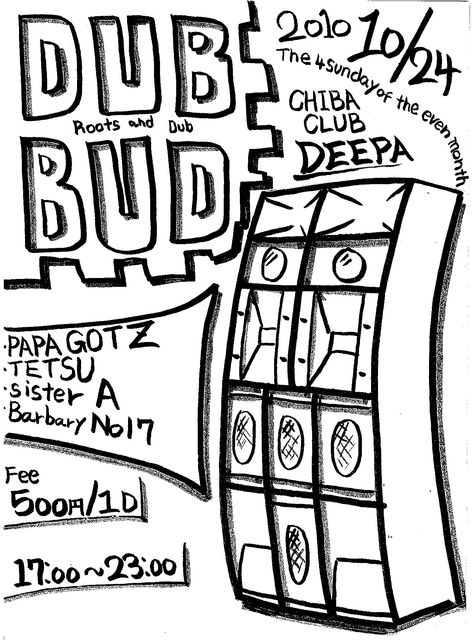 DUB
Roots and Dub
BUD
2010 10/24
The 4sunday of the even month
CHIBA
CLUB
DEEPA
·PAPA GOTZ
·TETSU
·sister A
·Barbary No17
Fee
500円/1D
17:00~23:00